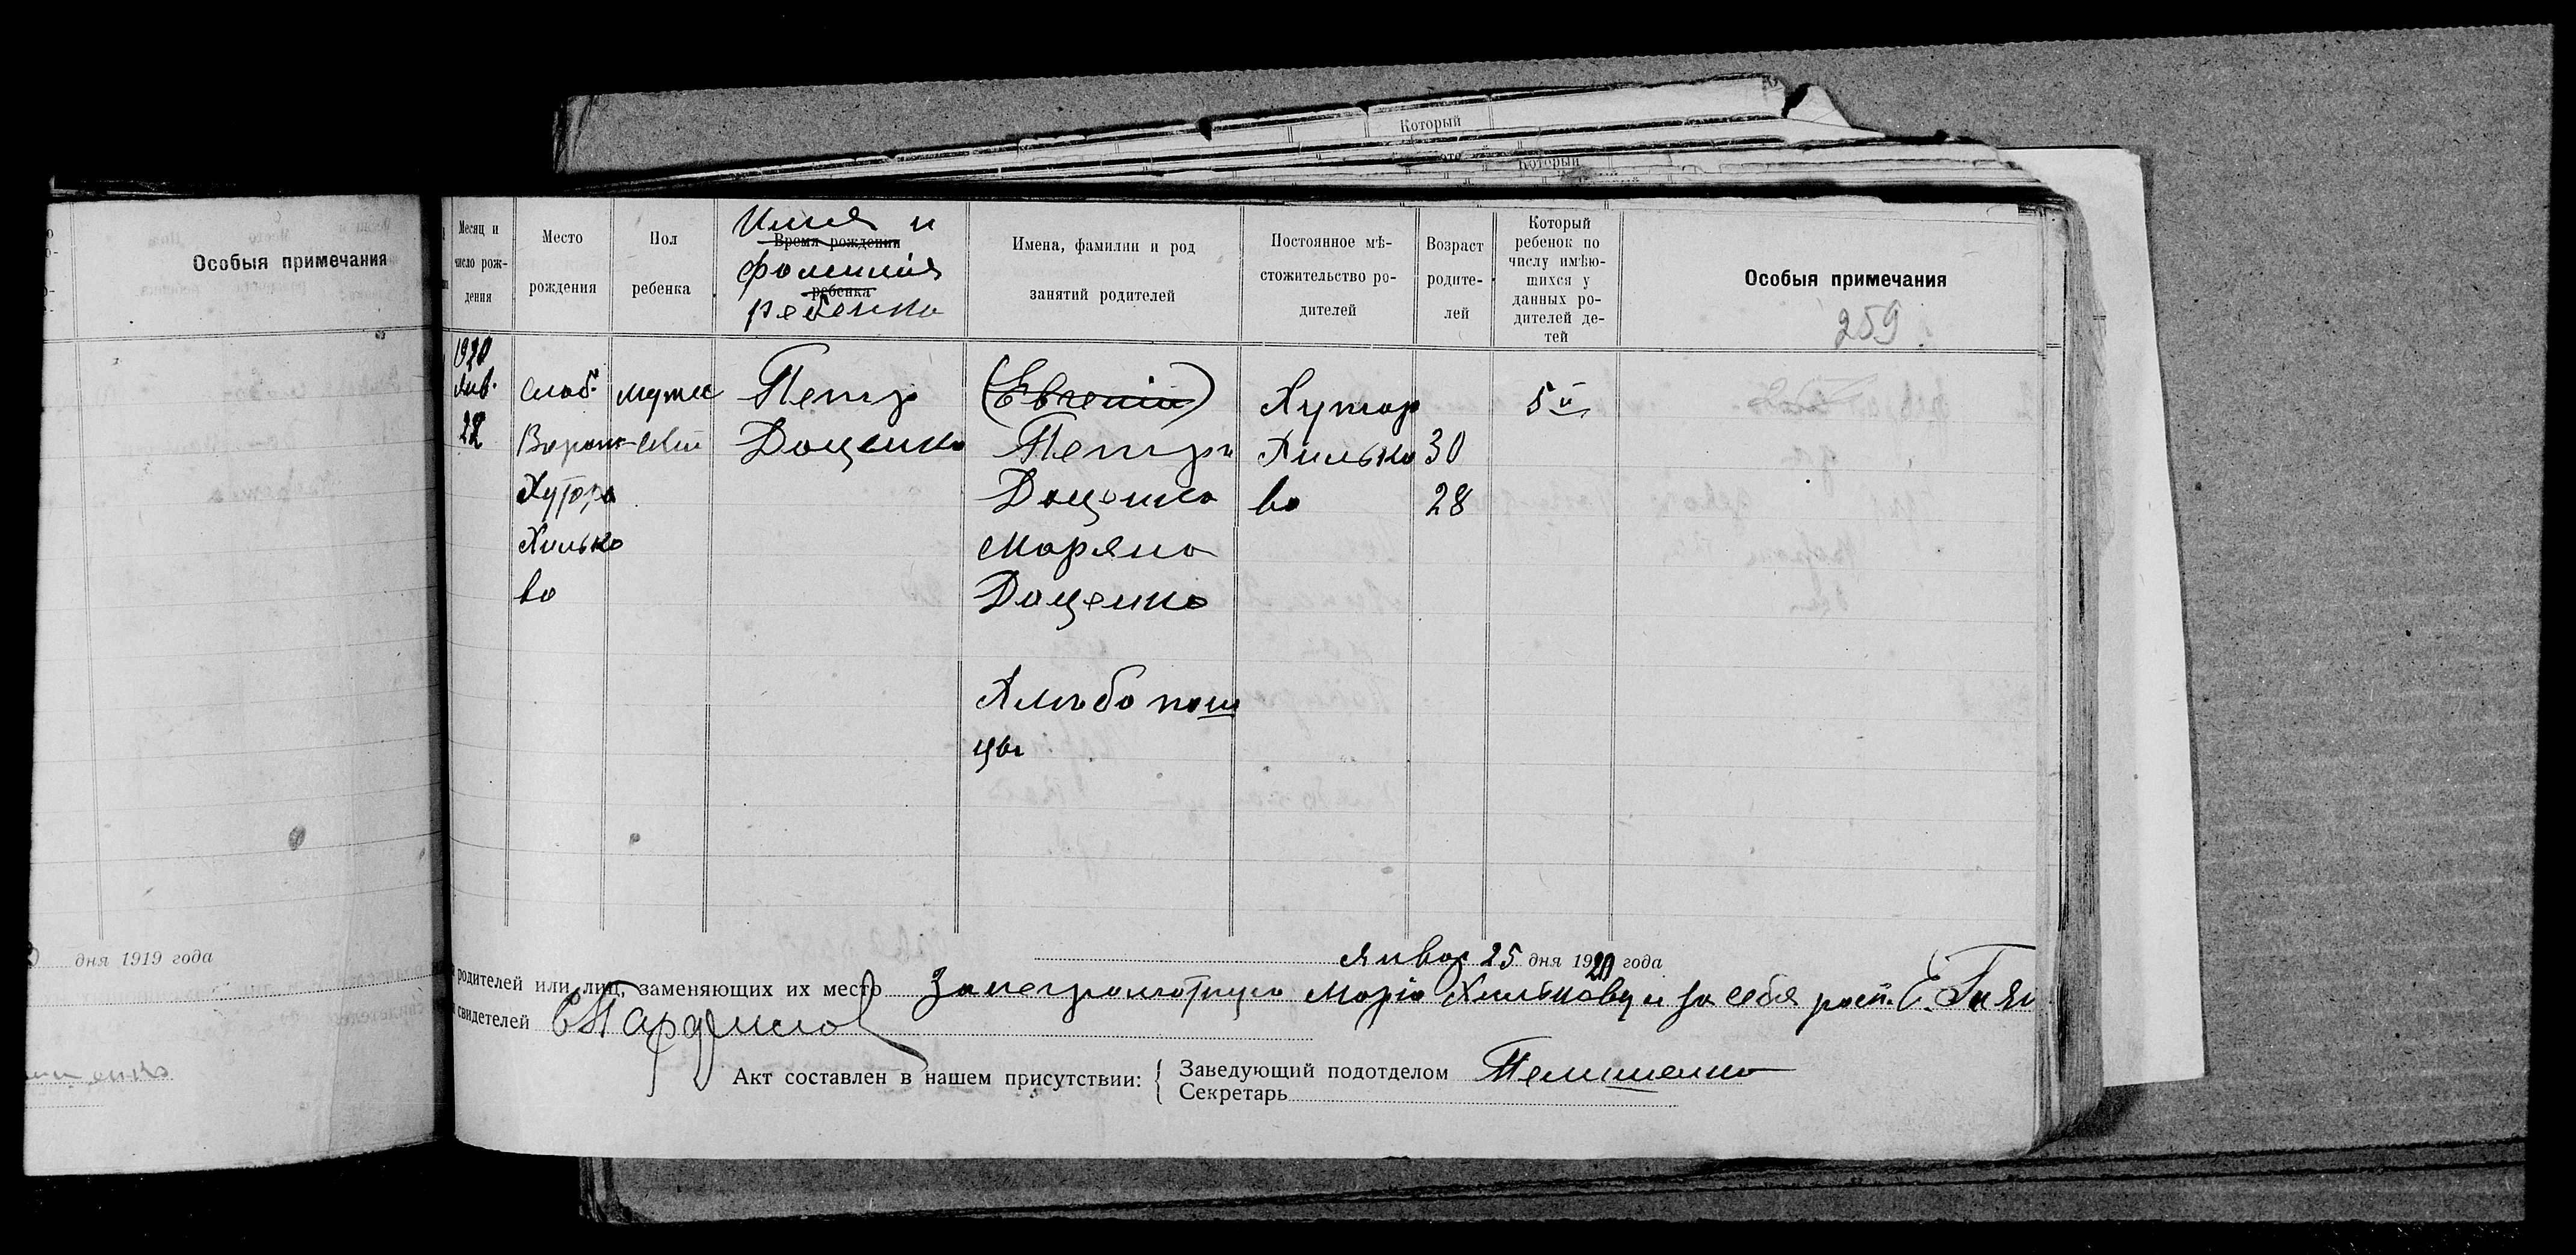 Который
Который
Особыя примечания
дня 1919 года
Месяц и число рождения
Место рождения
Пол ребенка
Имя и
Время рождения
фамилия
ребенка
ребенка
Имена, фамилии и род занятий родителей
Постоянное мѣстожительство родителей
Возраст родителей
Который ребенок по числу имѣющихся у данных родителей детей
Особыя примечания
259
1920
Янв.
22
Слоб.
Хутора
Хилько
во
мужс
ский
Петр
Доценко
(Евгений)
Петр и
Доценко
Маряна
Доценко
Хлѣбопаш
цы
Хутор
Хилько
во
30
28
5й
Январ 25 дня 1920 года
родителей или лиц, заменяющих их место За неграмотную Марію Хилькову и за себя расп. Е.
свидетелей
Акт составлен в нашем присутствии:
Заведующий подотделом
Секретарь